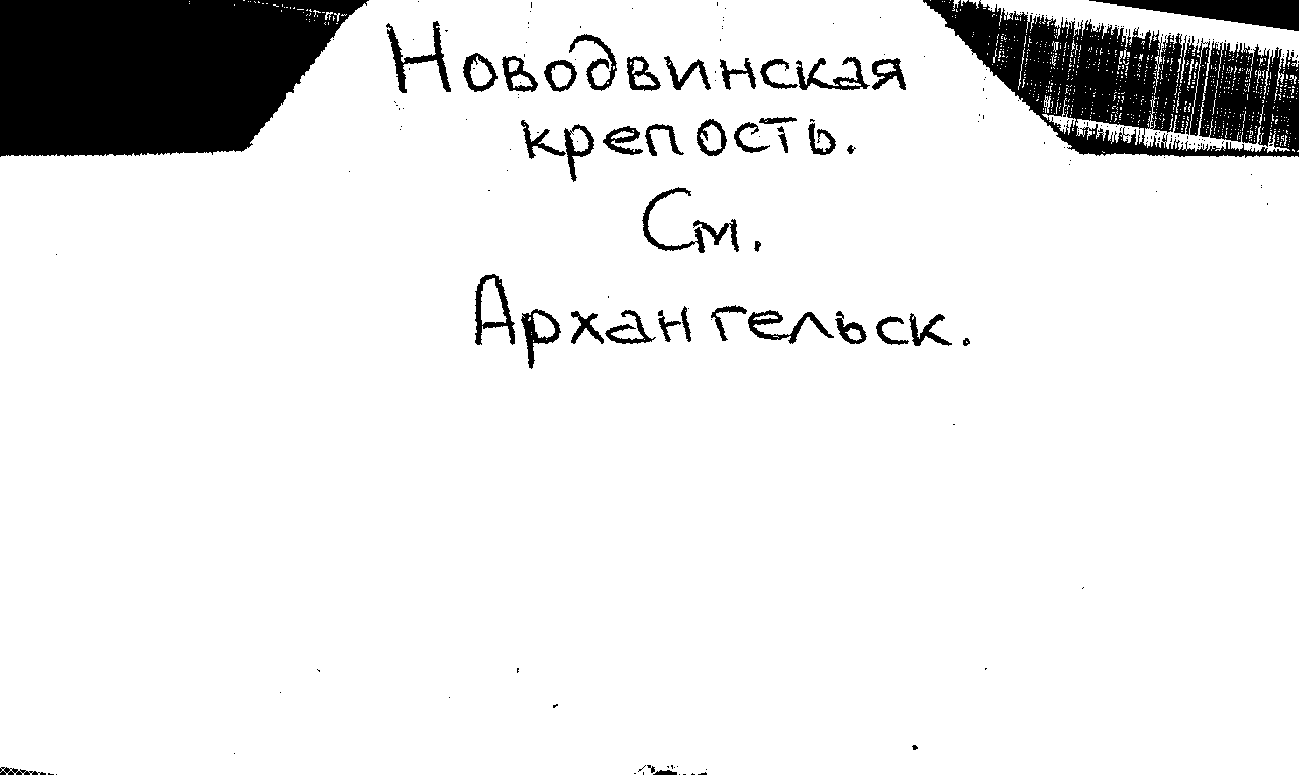 Новодвинская
крепость.
См.
Архангельск.